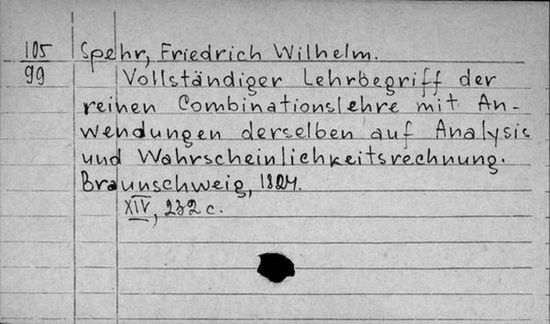 105
99
Spehr, Friedrich Wilhelm.
Vollständiger Lehrbegriff der
reinen Combinationslehre mit An-
wendungen derselben auf Analysis
und Wahrscheinlichkeitsrechnung.
Braunschweig, 1824.
XIV, 232 c.